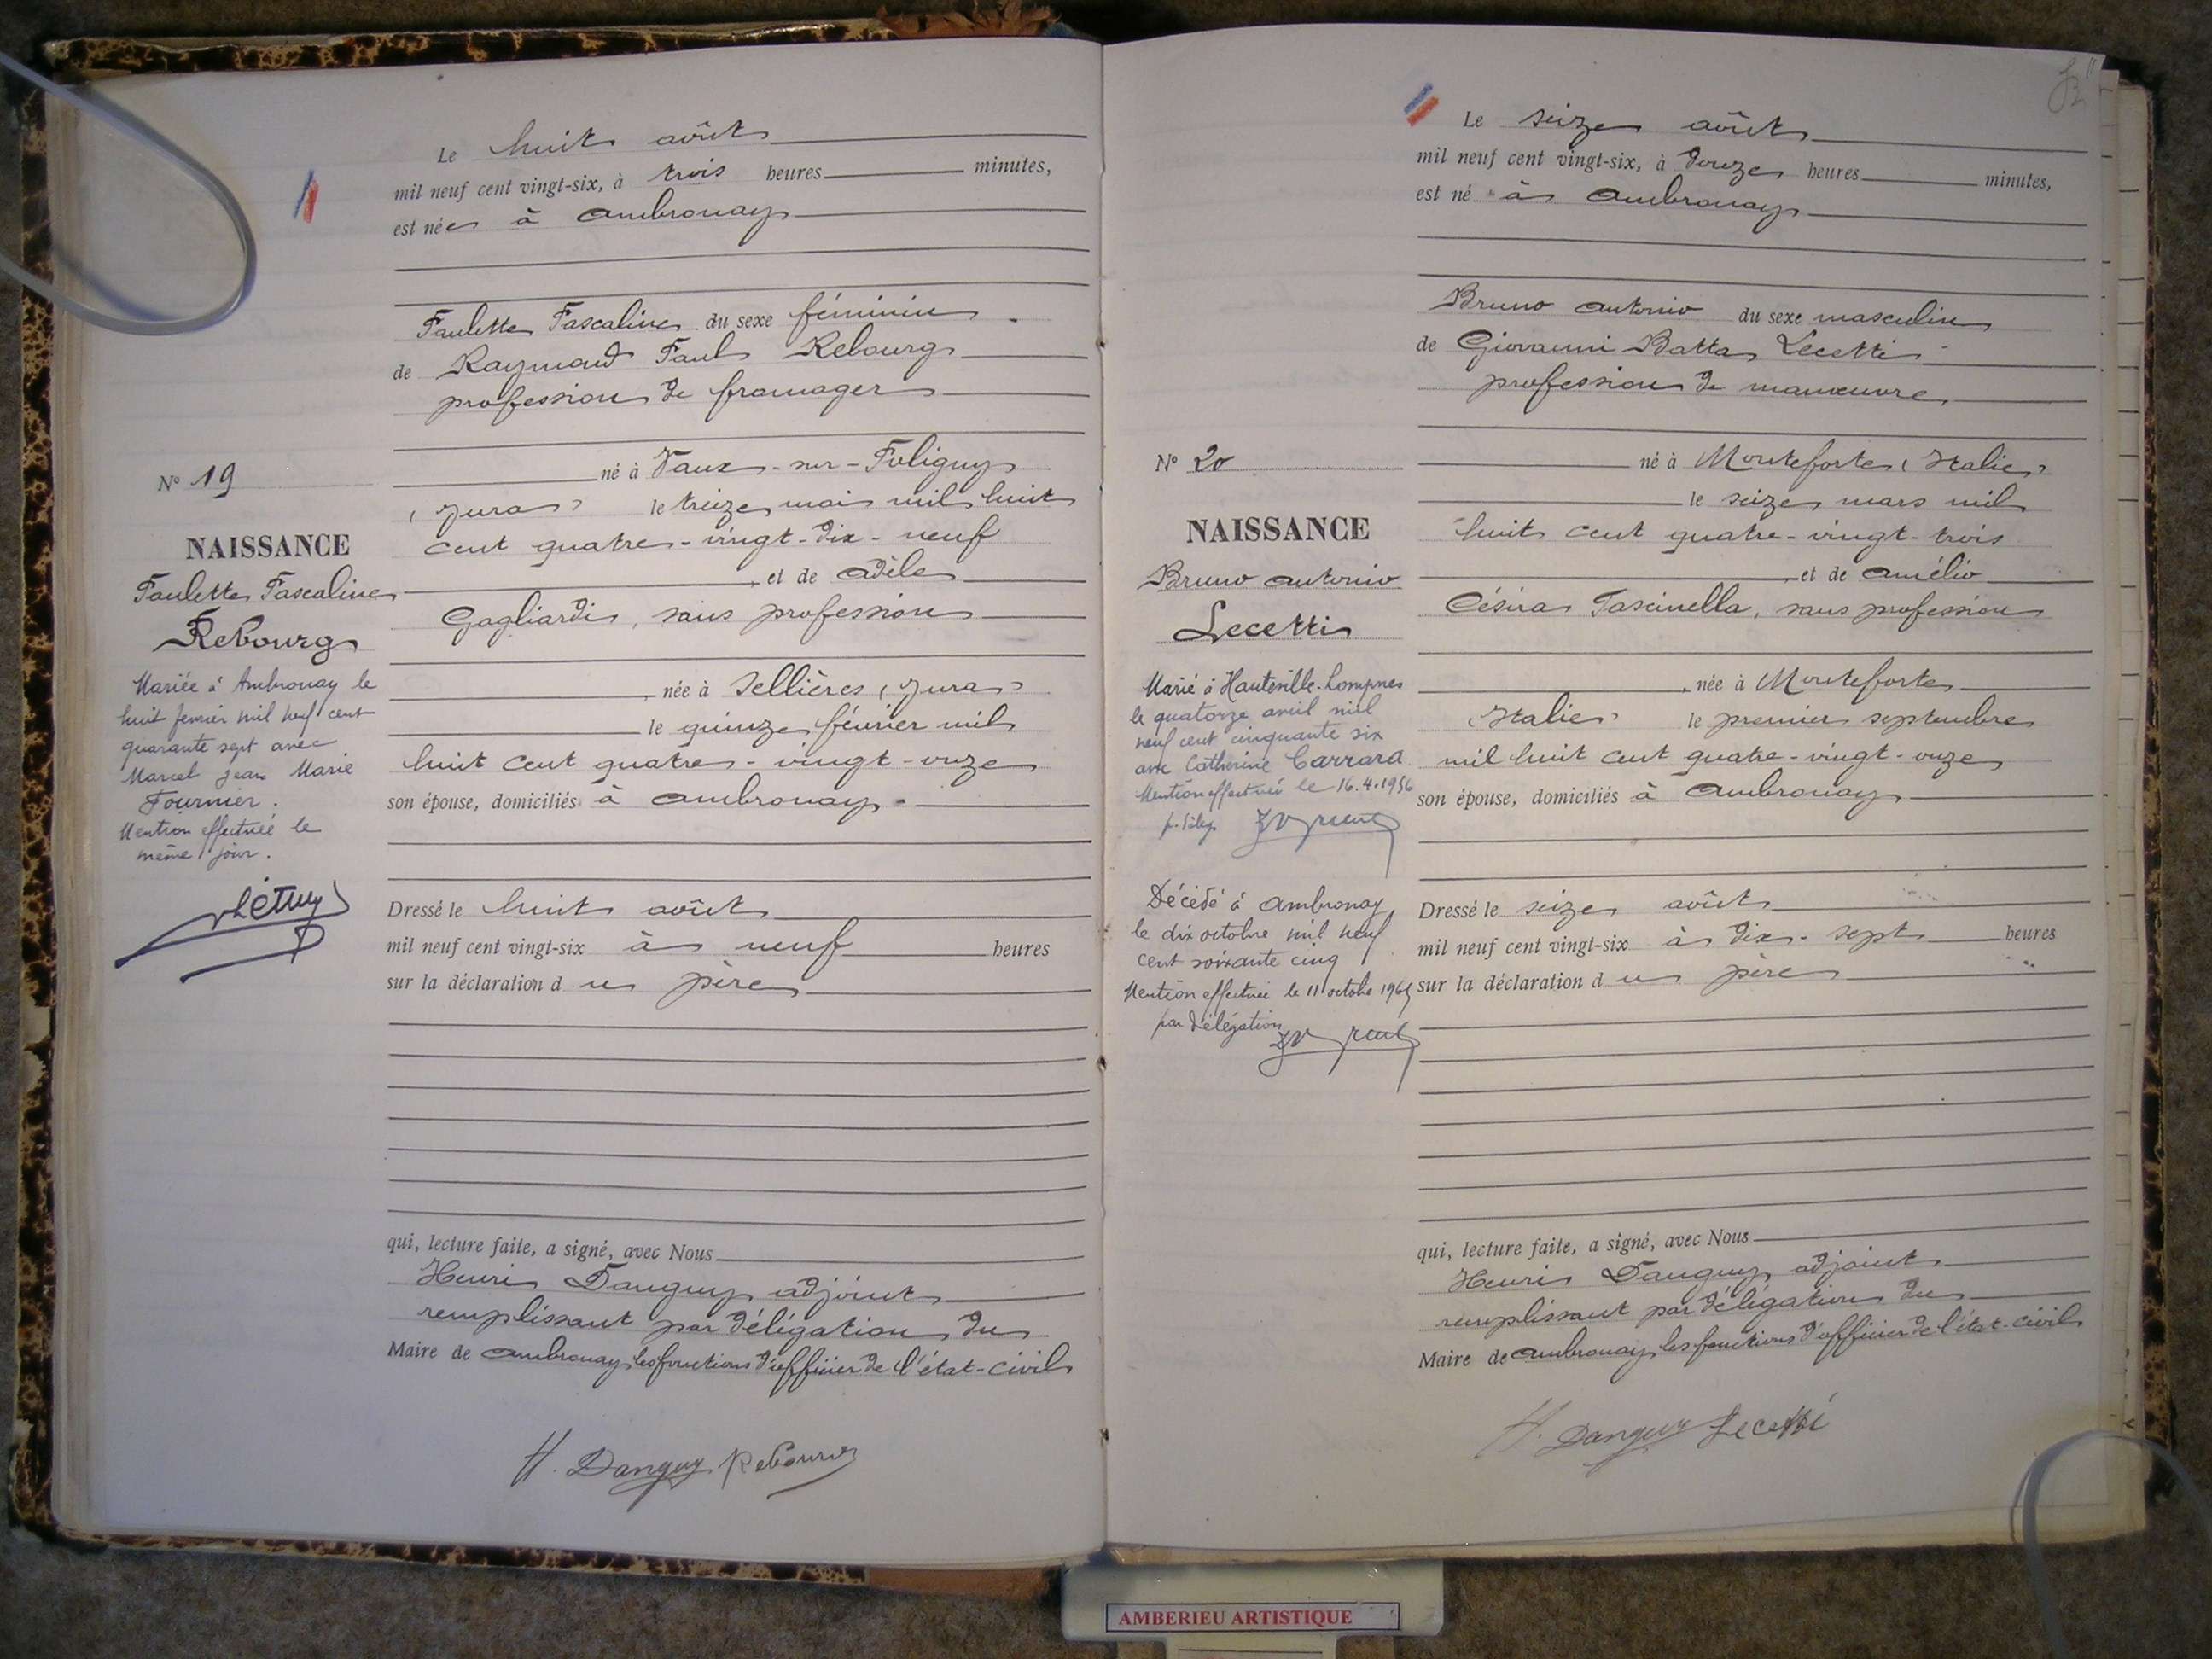 Le huit août
mil neuf cent vingt-six, à trois heures minutes,
est née à Ambronay
Paulette Pascaline du sexe féminin
de Raymond Paul Rebourg
profession de fromager
né à Vaux-sur-Poligny
(Jura) le treize mai mil huit
cent quatre-vingt-dix-neuf
et de Adèle
Gagliardi, sans profession
née à Sellières (Jura)
le quinze février mil
huit cent quatre-vingt-onze
son épouse, domiciliés à Ambronay.
Dressé le huit août
mil neuf cent vingt-six à neuf heures
sur la déclaration du père
qui, lecture faite, a signé, avec Nous
Henri Danguy adjoint
remplissant par délégation du
Maire de Ambronay les fonctions d'officier de l'état-civil
H. Danguy Rebourg
N° 19
NAISSANCE
Paulette Pascaline
Rebourg
Mariée à Ambronay le
huit fevrier mil neuf cent
quarante sept avec
Marcel Jean Marie
Fournier.
Mention effectuée le
même jour.
Le seize août
mil neuf cent vingt-six, à douze heures minutes,
est né à Ambronay
Bruno Antonio du sexe masculin
de Giovanni Batta Lecetti
profession de manœuvre,
né à Monteforte (Italie)
le seize mars mil
huit cent quatre-vingt-trois
et de Amélio
Césira Pascinella, sans profession
née à Monteforte
(Italie) le premier septembre
mil huit cent quatre-vingt-onze
son épouse, domiciliés à Ambronay
Dressé le seize août
mil neuf cent vingt-six à dix-sept heures
sur la déclaration du père
qui, lecture faite, a signé, avec Nous
Henri Danguy adjoint
remplissant par délégation du
Maire de Ambronay les fonctions d'officier de l'état-civil
H. Danguy Lecetti
N° 20
NAISSANCE
Bruno Antonio
Lecetti
Marié à Hauteville-Lompnes
le quatorze avril mil
neuf cent cinquante six
avec Catherine Carrara
Mention effectuée le 16.4.1956
p. délég.
Décédé à Ambronay
le dix octobre mil neuf
cent soixante cinq
Mention effectuée le 11 octobre 1965
par délégation
AMBERIEU ARTISTIQUE